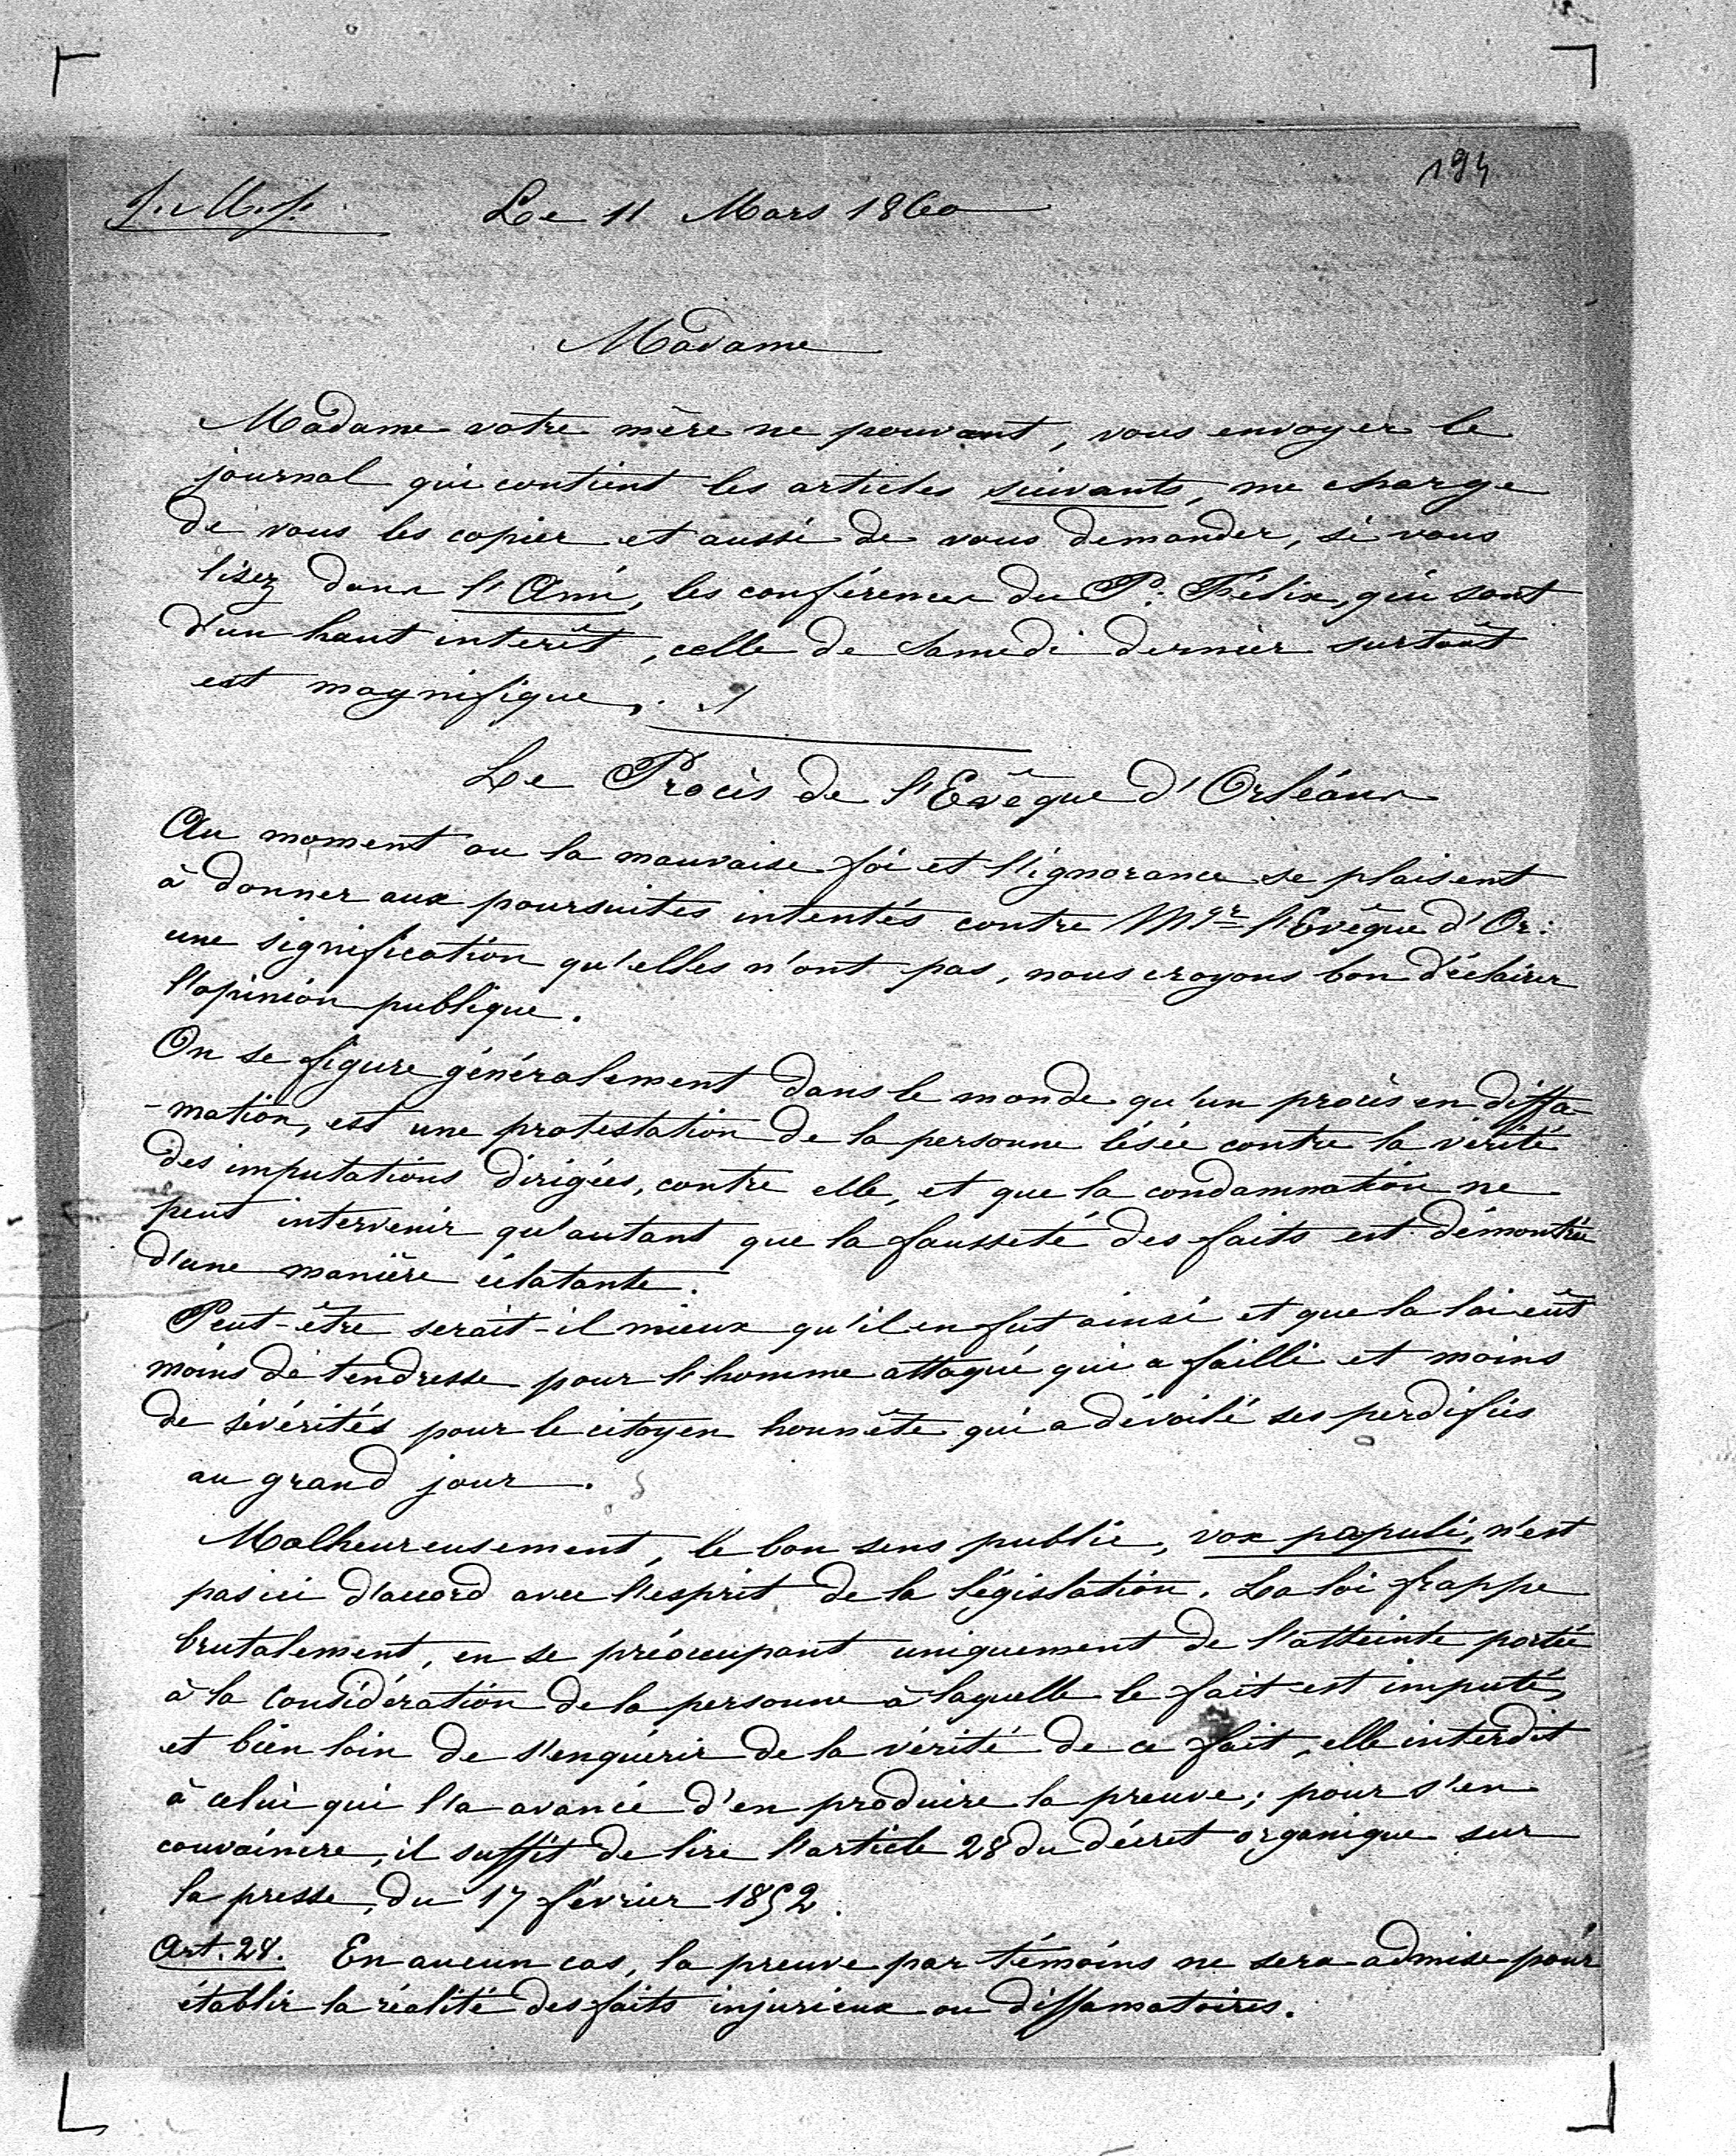 194
J. M. J. Le 11 Mars 1860
Madame
Madame votre mère ne pouvant, vous envoyer le
journal qui contient les articles suivants, me charge
de vous les copier et aussi de vous demander, si vous
lisez dans l'Ami, les conférences du P. Félix, qui sont
d'un haut interêt, celle de Samedi dernier surtout
est magnifique.
Le Procès de l'Evêque d'Orléans
Au moment ou la mauvaise foi et l'ignorance se plaisent
à donner aux poursuites intentés contre Mgr l'Evêque d'Or:
une signification qu'elles n'ont pas, nous croyons bon d'éclairer
l'opinion publique.
On se figure généralement dans le monde qu'un procès en diffa-
-mation, est une protestation de la personne lésée contre la vérité
des imputations dirigées, contre elle, et que la condamnation ne
peut intervenir qu'autant que la fausseté des faits est démontrée
d'une manière éclatante.
Peut-être serait-il mieux qu'il en fut ainsi et que la loi eût
moins de tendresse pour l'homme attaqué qui a failli et moins
de sévérités pour le citoyen honnête qui a dévoilé ses perdifies
au grand jour.
Malheureusement, le bon sens public, vox populi, n'est
pas ici d'accord avec l'esprit de la législation. La loi frappe
brutalement, en se préoccupant uniquement de l'atteinte portée
à la considération de la personne à laquelle le fait est imputé,
et bien loin de s'enquérir de la vérité de ce fait, elle interdit
à celui qui l'a avancé d'en produire la preuve; pour s'en
convaincre, il suffit de lire l'article 28 du décret organique sur
la presse, du 17 février 1852.
Art. 28. En aucun cas, la preuve par témoins ne sera admise pour
établir la réalité des faits injurieux ou diffamatoires.